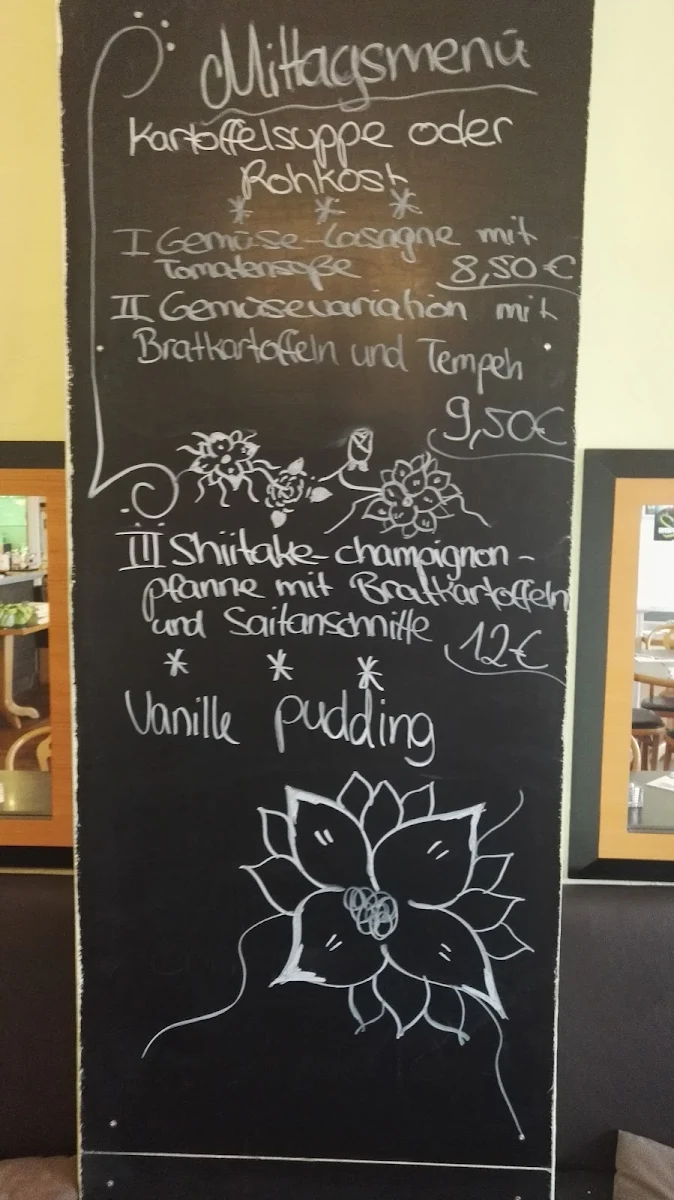 Mittagsmenü
Kartoffelsuppe oder
Rohkost
* * *
I Gemüse-Lasagne mit
Tomatensoße 8,50€
II Gemüsevariation mit
Bratkartoffeln und Tempeh
9,50€
III Shiitake-champignon-
pfanne mit Bratkartoffeln
und Saitanschnitte 12€
* * *
Vanille pudding